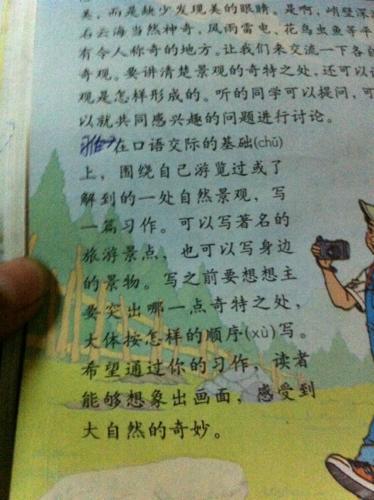 美，而是缺少发现美的眼睛。是啊，峭壁深
石云海当然神奇，风雨雷电、花鸟虫鱼等平
有令人称奇的地方。让我们来交流一下各自
奇观。要讲清楚景观的奇特之处，还可以
观是怎样形成的。听的同学可以提问，可
以就共同感兴趣的问题进行讨论。
在口语交际的基础(chǔ)
上，围绕自己游览过或了
解到的一处自然景观，写
一篇习作。可以写著名的
旅游景点，也可以写身边
的景物。写之前要想想主
要突出哪一点奇特之处，
大体按怎样的顺序(xù)写。
希望通过你的习作，读者
能够想象出画面，感受到
大自然的奇妙。